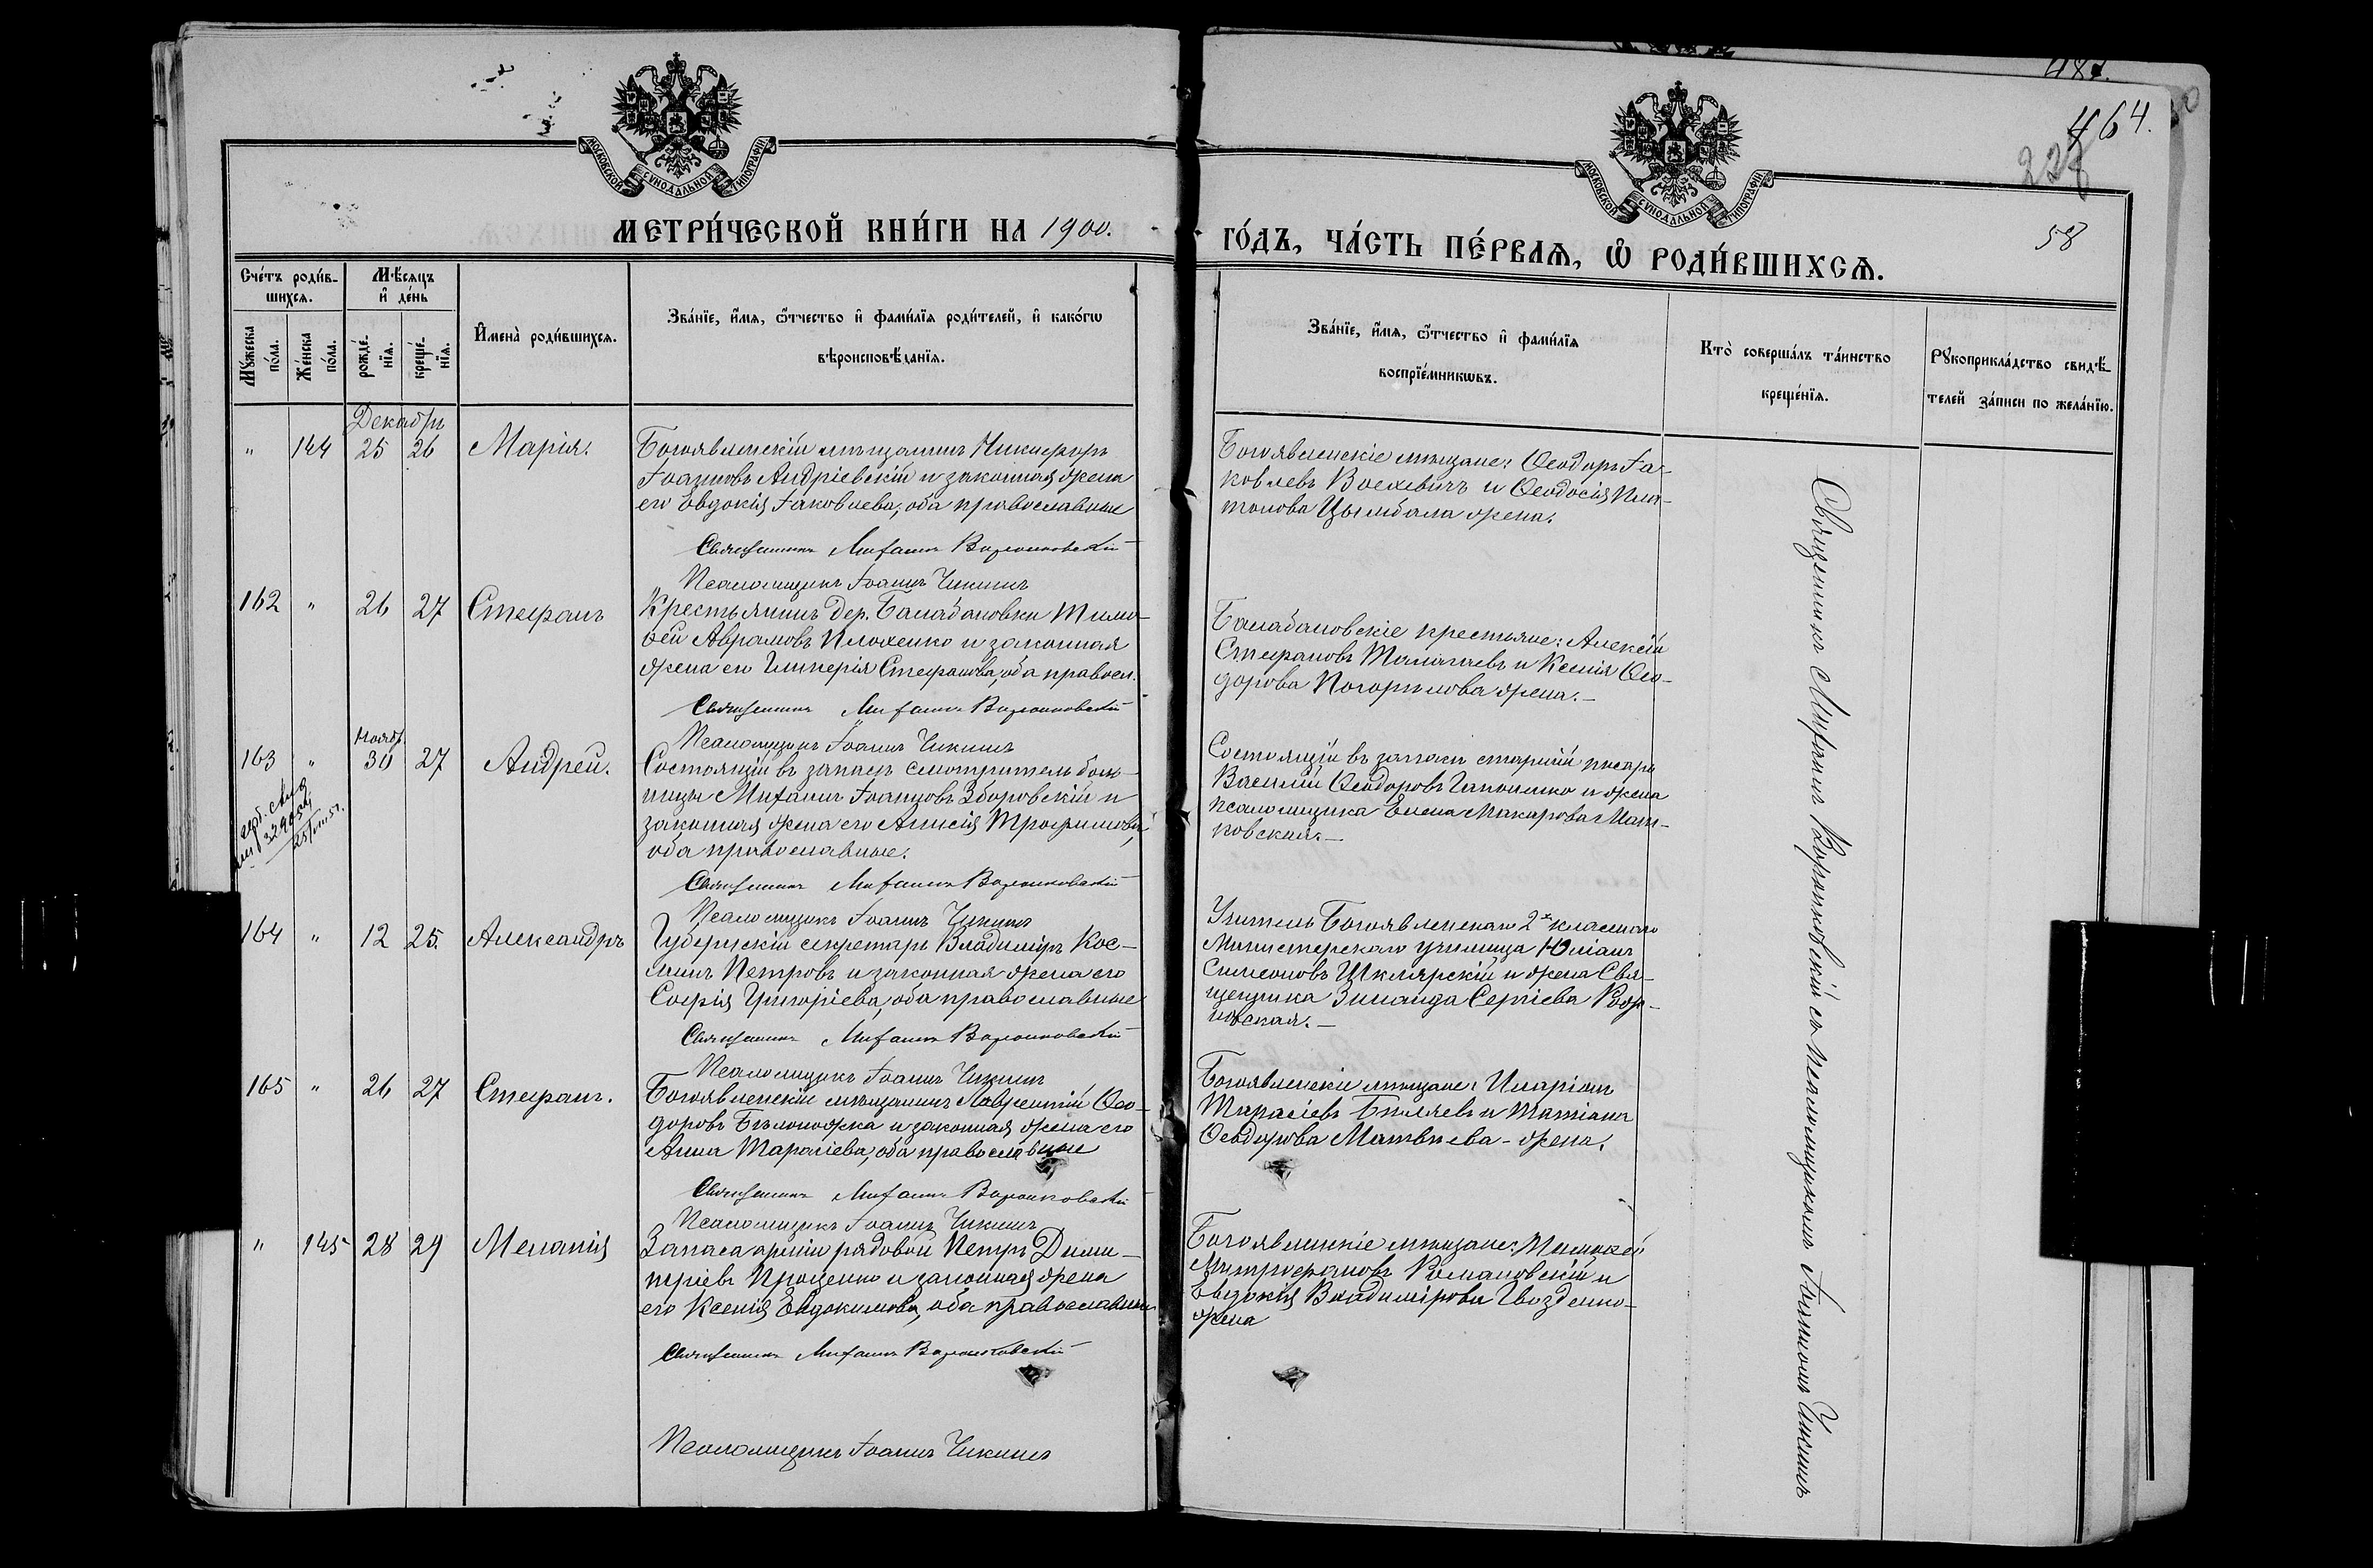 487.
464.
228
58
МОСКОВСКОЙ СѴНОДАЛЬНОЙ ТИПОГРАФІИ
МОСКОВСКОЙ СѴНОДАЛЬНОЙ ТИПОГРАФІИ
МЕТРИ́ЧЕСКОЙ КНИ́ГИ НА 1900.
ГО́ДЪ, ЧА́СТЬ ПЕ́РВАѦ, Ѡ҆ РОДИ́ВШИХСѦ.
Сче́тъ роди́в-
шихся.
Мѣ́сяцъ
и҆ де́нь
Мꙋ́жеска
по́ла.
Же́нска
по́ла.
рожде́-
нїя.
креще́-
нїя.
И҆мена̀ роди́вшихся.
Зва́нїе, и҆́мя, ѻ҆́тчество и҆ фами́лїя роди́телей, и҆ како́гѡ
вѣроисповѣ́данїя.
Зва́нїе, и҆́мя, ѻ҆́тчество и҆ фами́лїя
воспрїе́мникѡвъ.
Кто̀ соверша́лъ та́инство
креще́нїя.
Рꙋкоприкла́дство свидѣ́-
телей за́писи по жела́нїю.
Декабрь
" 144 25 26 Марія.
Богоявленскій мѣщанинъ Никифоръ
Іоанновъ Андріевскій и законная жена
его Евдокія Іаковлева, оба православные
Священникъ Михаилъ Воронковскій
Псаломщикъ Іоаннъ Чикинъ
Богоявленскіе мѣщане: Ѳеодоръ Іа-
ковлевъ Военевичъ и Ѳеодосія Пла-
тонова Цымбала жена.
162 " 26 27 Стефанъ
Крестьянинъ дер. Балабановки Тимо-
ѳей Аврамовъ Плохенко и законная
жена его Гликерія Стефанова, оба правосл.
Священникъ Михаилъ Воронковскій
Псаломщикъ Іоаннъ Чикинъ
Балабановскіе крестьяне: Алексій
Стефановъ и Ксенія Ѳео-
дорова Погорилова жена. —
Ноябр.
163 " 30 27 Андрей.
32905
Состоящій въ запасѣ смотритель боль-
ницы Михаилъ Іоанновъ Зборовскій и
законная жена его Анисія Трофимова,
оба православные.
Священникъ Михаилъ Воронковскій
Псаломщикъ Іоаннъ Чикинъ
Состоящій въ запасѣ старшій писарь
Василій Ѳеодоровъ Гапоненко и жена
псаломщика Елена Макарова Мань-
ковская. —
164 " 12 25. Александръ
Губернскій секретарь Владиміръ Кос-
минъ Петровъ и законная жена его
Софія Григоріева, оба православные
Священникъ Михаилъ Воронковскій
Псаломщикъ Іоаннъ Чикинъ
Учитель Богоявленскаго 2х класснаго
Министерскаго училища Юліанъ
Симеоновъ Шклярскій и жена Свя-
щенника Зинаида Сергіева
165 " 26 27 Стефанъ.
Богоявленскій мѣщанинъ Лаврентій Ѳео-
доровъ Бѣлоножка и законная жена его
Анна Тарасіева, оба православные
Священникъ Михаилъ Воронковскій
Псаломщикъ Іоаннъ Чикинъ
Богоявленскіе мѣщане: Иларіонъ
Тарасіевъ Биляевъ и Татіана
Ѳеодорова Матвѣева - жена.
" 145 28 29 Меланія
Запаса арміи рядовой Петръ Дими-
тріевъ Проценко и законная жена
его Ксенія Евдокимова, оба православные
Священникъ Михаилъ Воронковскій
Псаломщикъ Іоаннъ Чикинъ
Богоявленскіе мѣщане: Тимоѳей
Митрофановъ Романовскій и
Евдокія Владимірова Гвозденко-
жена
Священникъ Михаилъ Воронковскій съ псаломщикомъ Іоанномъ Чикинымъ